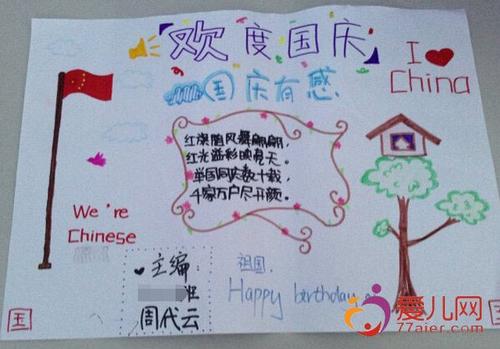 欢度国庆
I ❤
China
国庆有感
红旗随风舞翩翩,
红光溢彩映亮天。
举国同庆数十载,
千家万户尽开颜。
We're
Chinese
♥主编
班
周代云
祖国,
Happy birthday
国
国
爱儿网
77aier.com